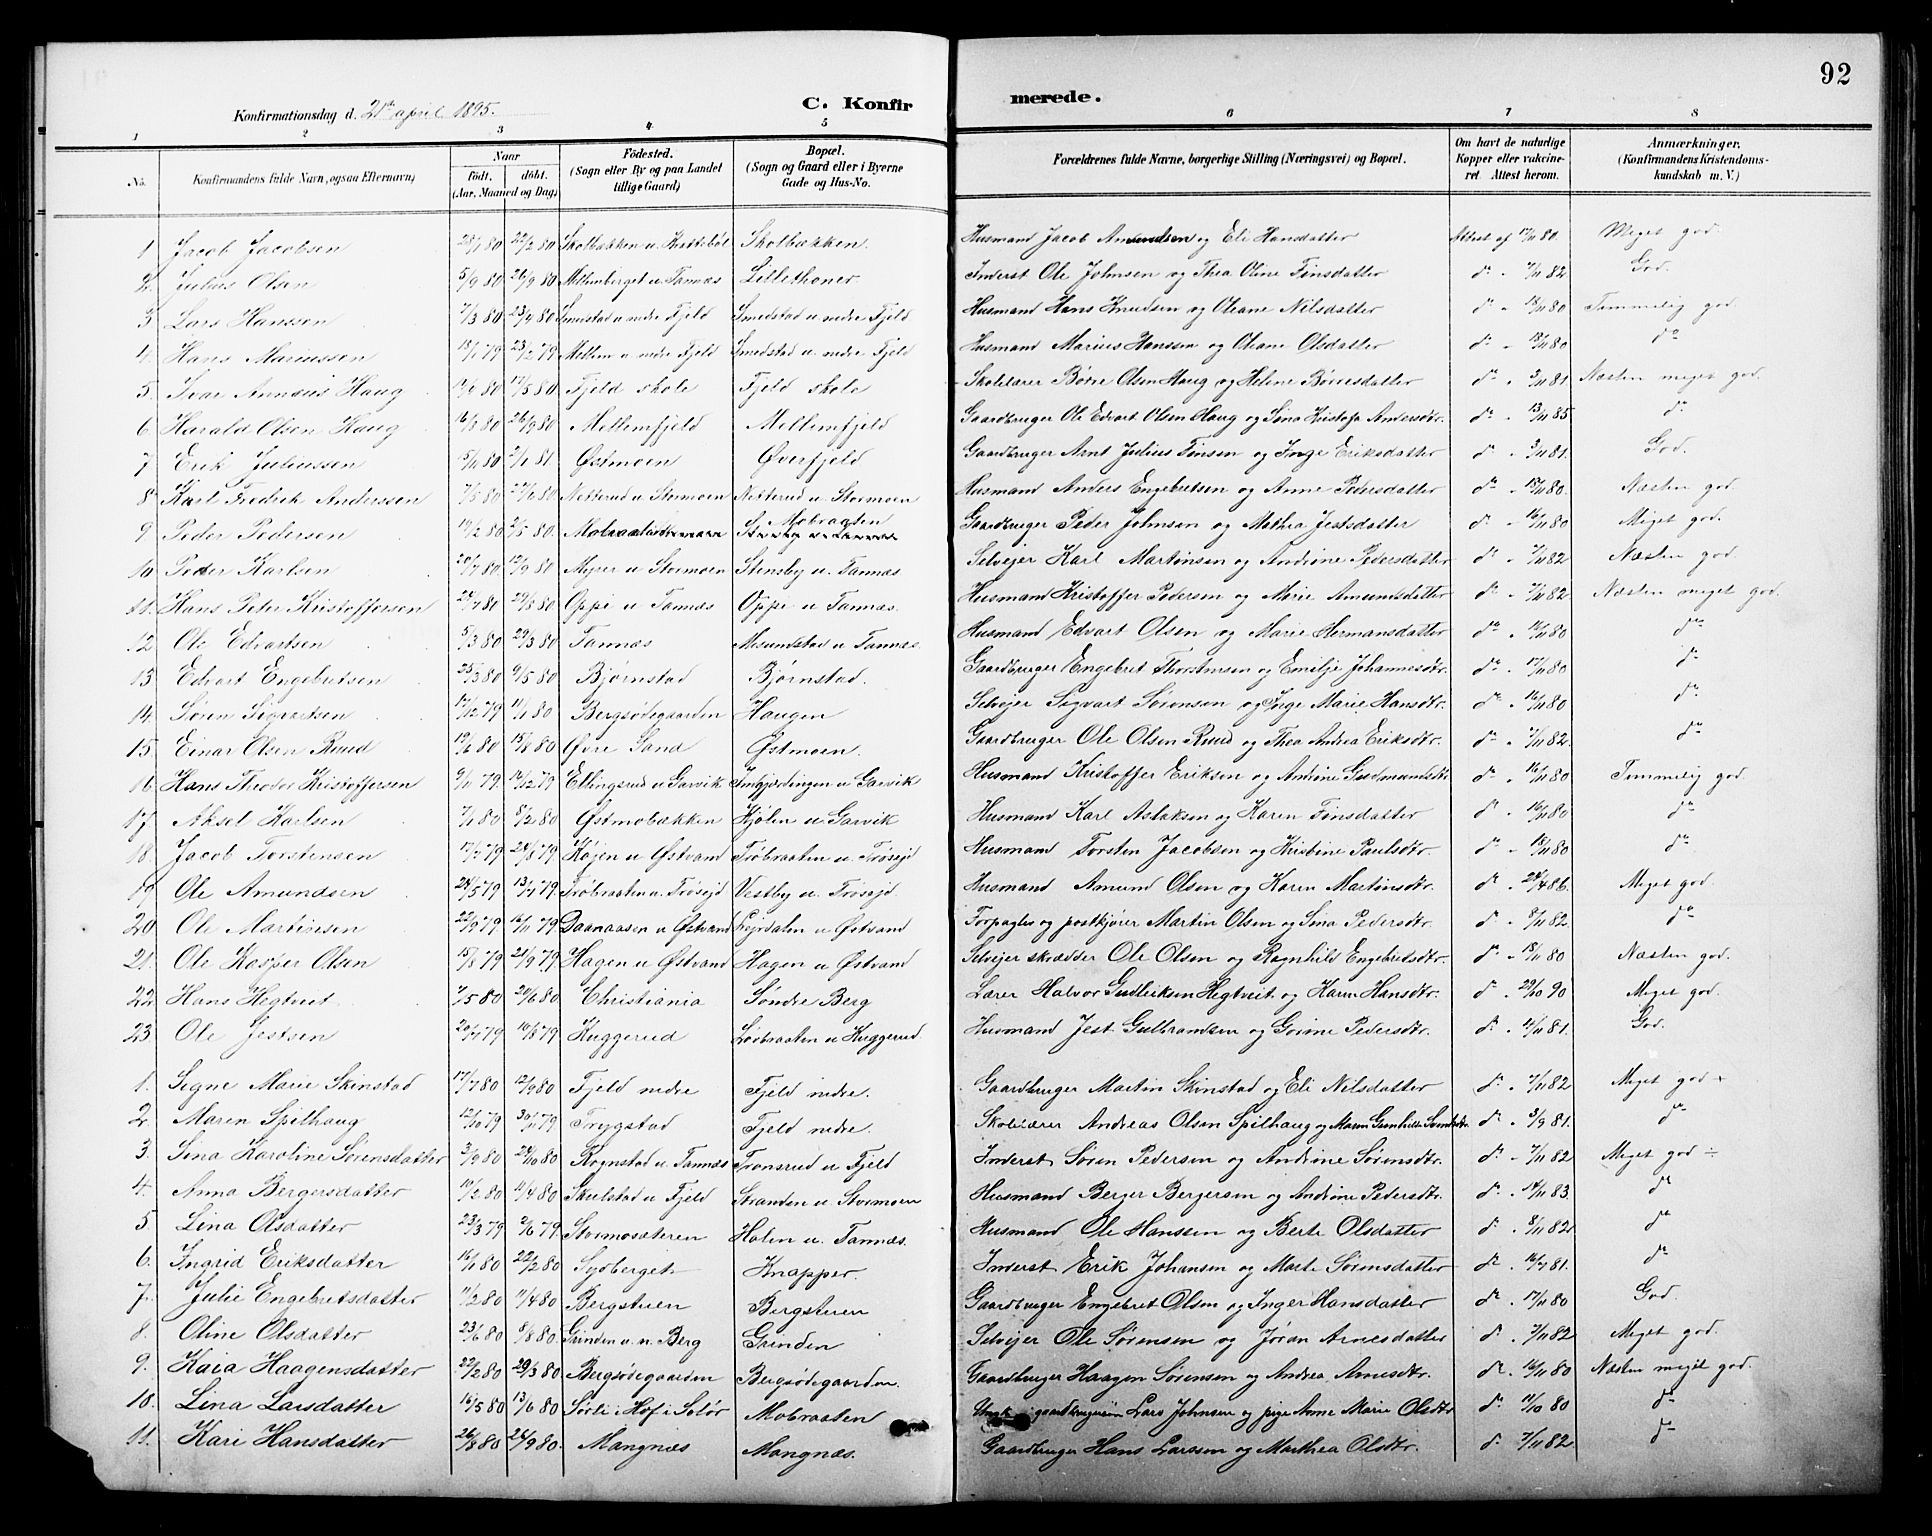 92
Konfirmationsdag d. 21de april 1895.
C. Konfirmerede.
1 2 3 4. 5 6 7 8
No. Konfirmandens fulde Navn, ogsaa Efternavn, Naar født. døbt. (Aar, Maaned og Dag) Fødested. (Sogn eller By og paa Landet tillige Gaard) Bopæl. (Sogn og Gaard eller i Byerne Gade og Hus-No. Forældrenes fulde Navne, borgerlige Stilling (Næringsvei) og Bopæl. Om havt de naturlige Kopper eller vaccineret. Attest herom. Anmærkninger. (Konfirmandens Kristendomskundskab m. V.)
1 Jacob Jacobsen 28/1 80 22/2 80 Skolbækken u. Skolbækken. Husmand Jacob Amundsen og Eli Hansdatter Attest af 17/11 80. Meget god.
2. Julius Olsen 5/9 80 26/9 80 Mellemberget u. Tannæs Lillethoner. Inderst Ole Johnsen og Thea Oline Finsdatter do - 7/11 82 God.
3 Lars Hanssen 7/3 80 23/4 80 Smedstad u nedre Fjeld Smedstad u nedre Fjeld Husmand Hans Knudsen og Oleane Nilsdatter do - 18/11 80 Temmelig god
4. Hans Mariussen 13/1 79 23/2 79 Mellem u. nedre Fjeld Smedstad u nedre Fjeld Husmand Marius Hanssen og Oleane Olsdatter do - 18/11 80 do
5. Ivar Annæus Haug 17/5 80 Fjeld skole Fjeld skole Skolelærer Børre Olsen Haug og Helene Børresdatter do - 3/11 81. Næsten meget god.
6. Harald Olsen Haug 26/9 80 Mellemfjeld Mellemfjeld Gaardbruger Ole Edvart Olsen Haug og Sina Kristofa Andersdtr. do - 13/11 85 do
7. Erik Juliussen 5/11 80 2/1 81 Østmoen Øverfjeld Gaardbruger Arnt Julius Finsen og Inge Eriksdatter do - 3/11 81. God.
8 Karl Fredrik Anderssen 7/5 80 27/6 80 Netterud u Stormoen Netterud u Stormoen Husmand Anders Engebretsen og Anne Pedersdatter do - 17/11 80. Næsten god.
9 Peder Pedersen 19/2 80 2/5 80 Mobraaten Mobraaten Gaardbruger Peder Johnsen og Mathea Jestsdatter do - 16/11 80 Meget god.
10. Peder Karlsen 20/7 80. 12/9 80 Myrer u Stormoen Stensby u. Tannæs. Selvejer Karl Martinsen og Andrine Pedersdatter do - 7/11 82 Næsten god.
11. Hans Peter Kristoffersen 29/8 80 Oppi u Tannæs Oppe u Tannæs. Husmand Kristoffer Pedersen og Marie Amundsdatter do - 7/11 82 Næsten meget god.
12 Ole Edvartsen 5/3 80 29/3 80 Tannæs Mesundstad u Tannæs. Husmand Edvart Olsen og Marie Hermansdatter do - 16/11 80 do
13 Edvart Engebretsen 25/3 80 9/5 80 Bjørnstad Bjørnstad. Gaardbruger Engebret Thorstensen og Emilje Johannesdtr. do - 17/11 80 do
14. Søren Sigvartsen 17/12 79 11/1 80 Bergsødegaarden Haugen Selvejer Sigvart Sørensen og Inge Marie Hansdtr. do - 16/11 80 do
15. Einar Olsen Ruud 19/6 80 15/8 80 Øvre Sand Østmoen. Gaardbruger Ole Olsen Ruud og Thea Andrea Eriksdtr. do - 7/11 82. do
16 Hans Theodor Kristoffersen 9/11 79. 14/12 79 Ellingsrud u Garvik u Garvik Husmand Kristoffer Eriksen og Andrine Gudmundsdtr do - 16/11 80 Temmelig god.
17. Aksel Karlsen 7/1 80 8/2 80 Østmobækken Kjølen u Garvik Husmand Karl Aslaksen og Karen Finsdatter do - 16/11 80 do
18. Jacob Torstensen 17/7 79 24/8 79 Køjen u Østvand Trøbraaten u. Trøsejd Husmand Torsten Jacobsen og Kristine Paulsdtr. do - 18/11 80 do
19 Ole Amundsen 24/5 79 13/7 79 Trøbraaten u. Trøsejd Vestby u. Trøsejd Husmand Amund Olsen og Karen Martinsdtr. do - 24/4 86. Meget god.
20 Ole Martinsen 22/9 79 16/11 79 Daanaasen u Østvand Lejrdalen u Østvand Forpagter og postkjører Martin Olsen og Sina Pedersdtr. do - 8/11 82 do
21. Ole Kasper Olsen 15/8 79 21/9 79. Hagen u Østvand Hagen u Østvand Selvejer skrædder Ole Olsen og Ragnhild Engebretsdtr. do - 18/11 80 Næsten god.
22. Hans Hegtveit 7/5 80 20/6 80 Christiania Søndre Berg Lærer Halvor Gudleiksen Hegtveit og Karen Hansdtr. do - 29/10 90 Meget god.
23. Ole Jestsen 20/7 79 10/8 79 Kuggerud Løvbraaten u Kuggerud. Husmand Jest Gulbrandsen og Gorine Pedersdtr. do - 11/11 81. God.
1. Signe Marie Skinstad 17/7 80 12/9 80 Fjeld nedre Fjeld nedre. Gaardbruger Martin Skinstad og Eli Nilsdatter do - 7/11 82 Meget god +
2. Maren Spilhaug 12/10 79 30/11 79 Trygstad Fjeld nedre. Skolelærer Andreas Olsen Spilhaug og Maren Gunhild Svendsdtr do - 3/9 81. do
3. Sina Karoline Sørensdatter 3/9 80 24/10 80 Rognstad u. Tannæs Tronsrud u Fjeld Inderst Søren Pedersen og Andrine Sørensdtr. do - 7/11 82 Meget god ÷
4. Anna Bergersdatter 10/2 80 11/4 80 Skulstad u Fjeld Stranden u. Stormoen Husmand Berger Bergersen og Andrine Pedersdtr. do - 14/11 83. do
5 Lina Olsdatter 23/3 79 2/6 79. Stormosæteren Holen u. Tannæs. Husmand Ole Hanssen og Berte Olsdatter do - 8/11 82. do
6. Ingrid Eriksdatter 16/1 80 22/2 80 Sydberget Knapper. Inderst Erik Johansen og Marte Sørensdatter do - 16/7 81. do
7. Julie Engebretsdatter 11/2 80 11/4 80 Bergstuen Bergstuen Gaardbruger Engebret Olsen og Inger Hansdatter do - 17/11 80 God.
8. Oline Olsdatter 23/6 80 8/8 80. Grinden u. n. Berg Grinden Selvejer Ole Sørensen og Jøran Arnesdatter do - 7/11 82 Meget god.
9. Kaia Haagensdatter 22/2 80 29/3 80 Bergsødegaarden Bergsødegaarden. Gaardbruger Haagen Sørensen og Andrea Arnesdtr. do - 16/11 80 Næsten meget god.
10. Lina Larsdatter 16/5 80 13/6 80 Sørli Hof i Solør Mobraaten gaardbrugersøn Lars Johnsen og pige Anne Marie Olsdtr do - 11/10 80 do
11. Kari Hansdatter 26/8 80 26/9 80. Mangnæs Mangnæs. Gaardbruger Hans Larssen og Marthea Olsdtr. do - 7/11 82. do